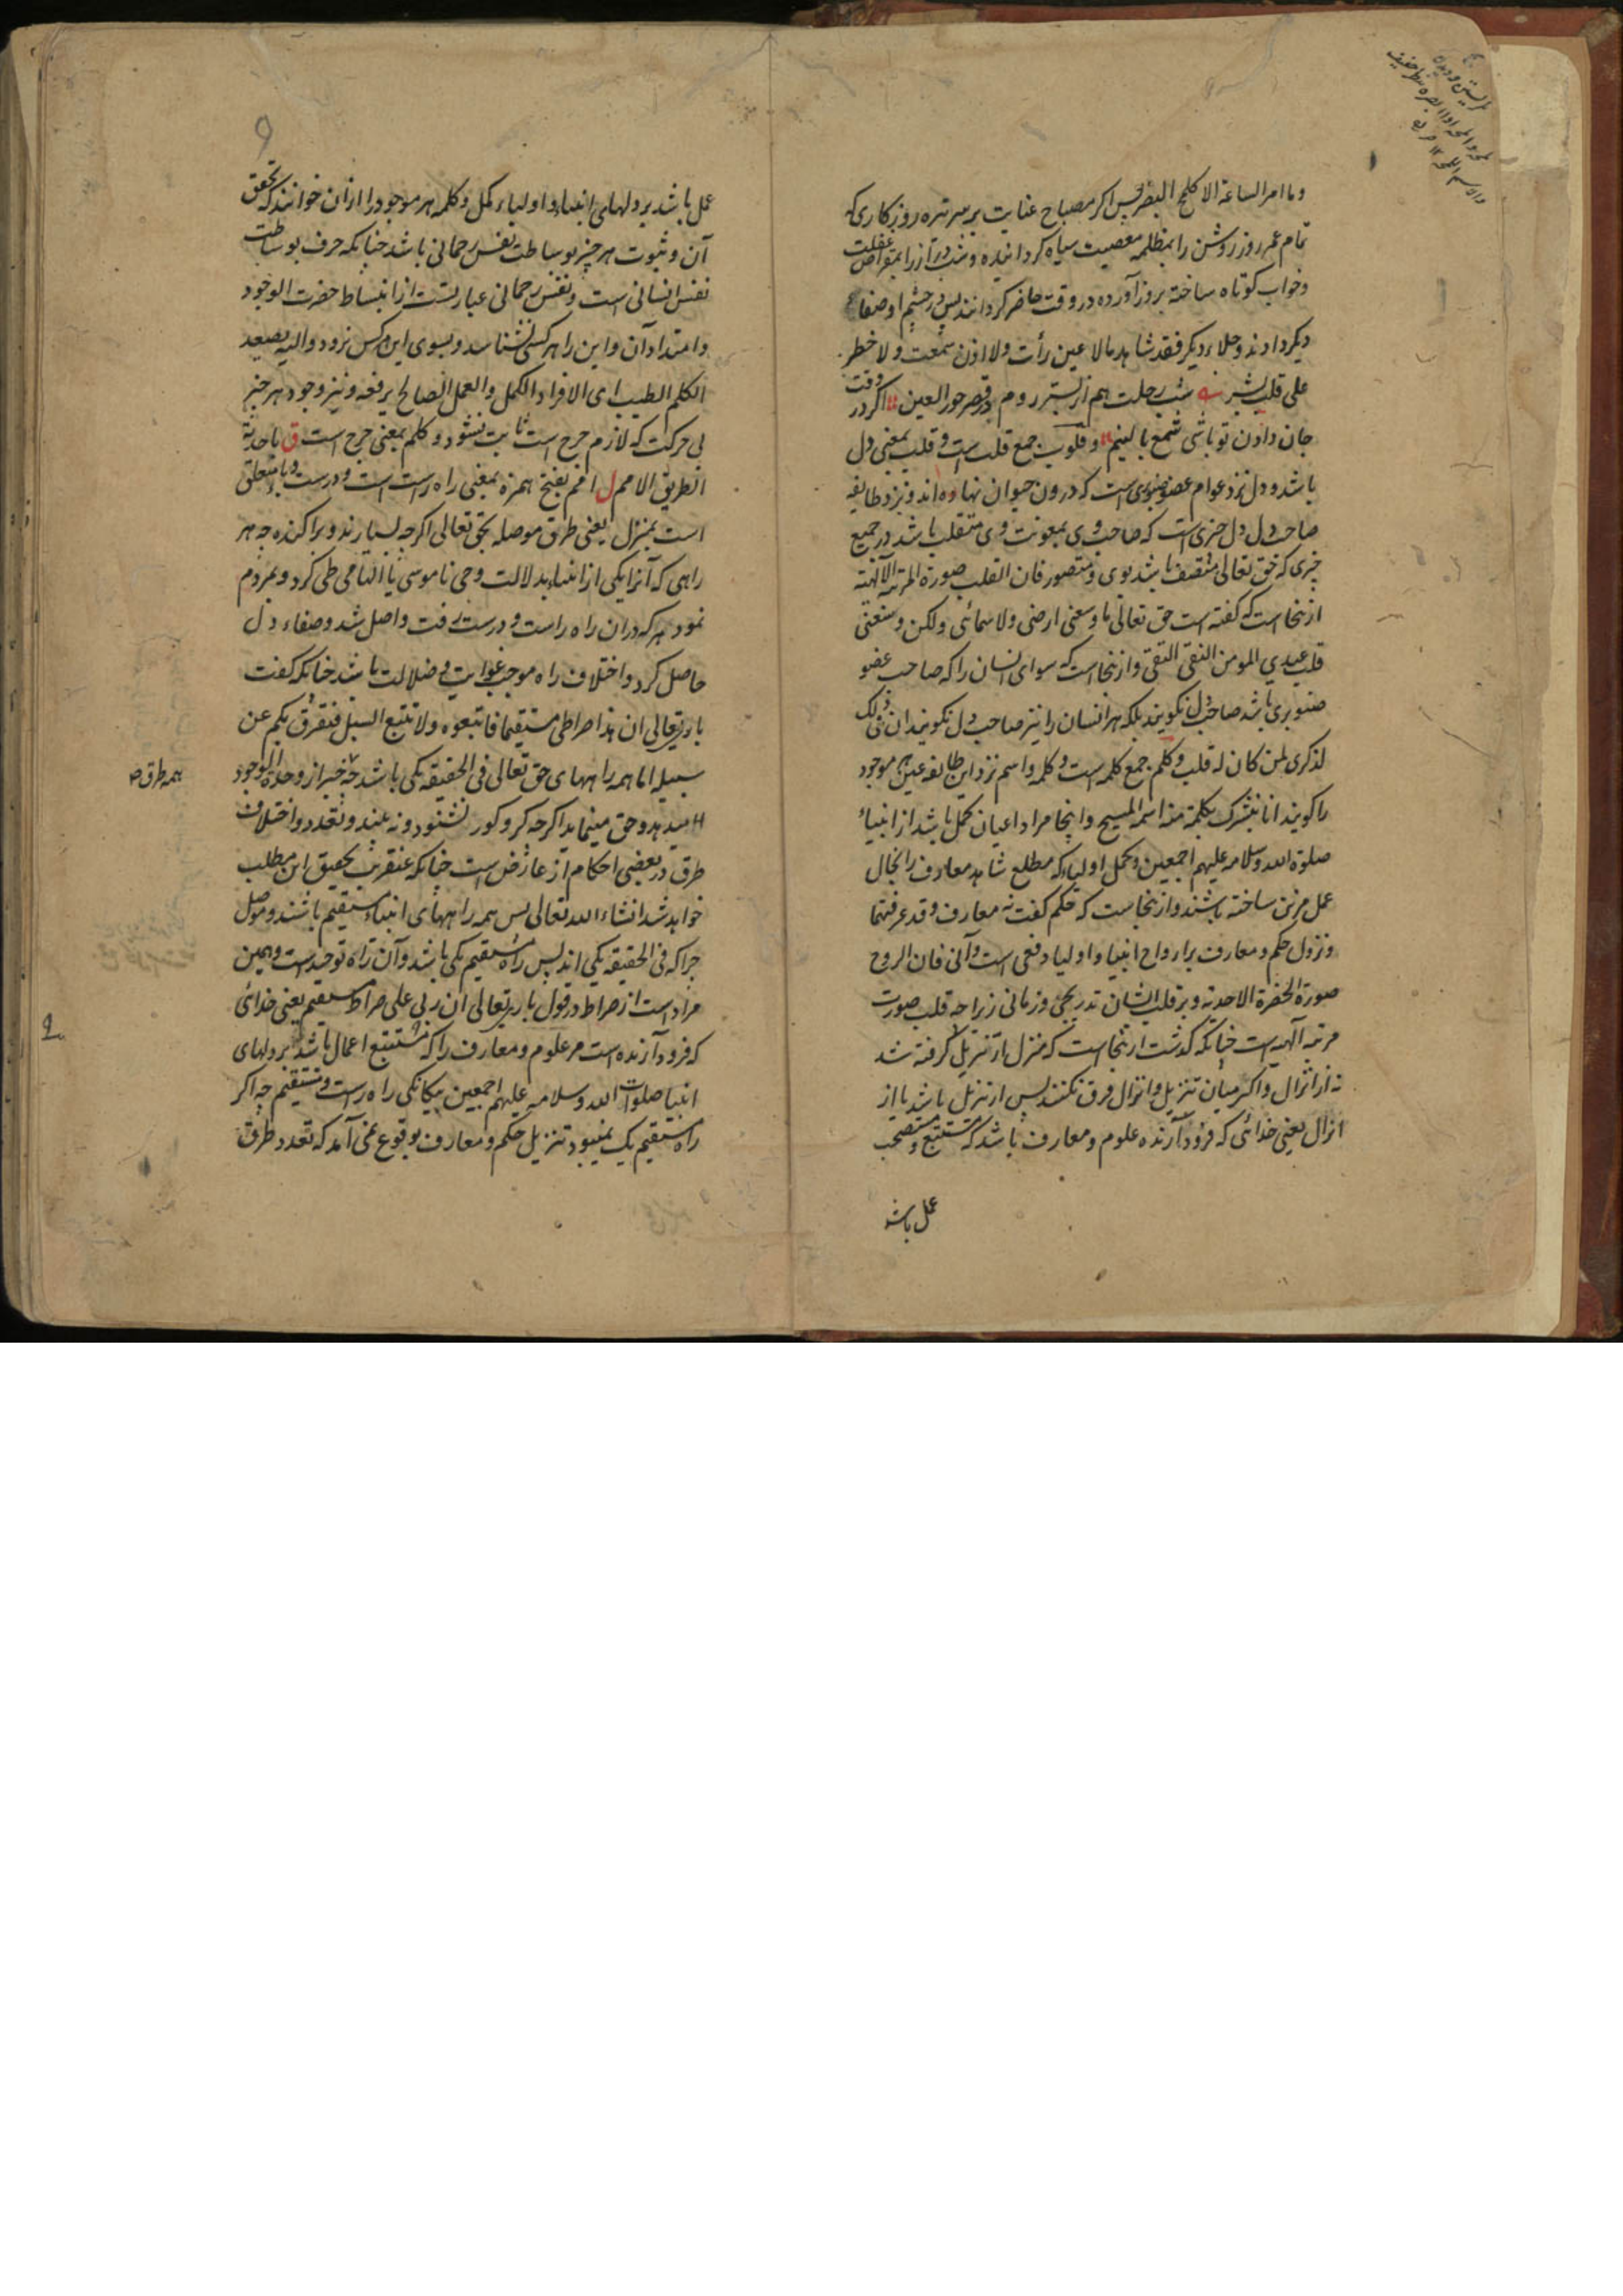 وما امر الساعة الا کلمح البصر پس اکر مصباح عنایت بر سر تیره روزکاری که
تمام عمر روز روشن را بمظلمه معصیت سیاه کردانیده و شب دراز را بمقراض غفلت
وخواب کوتاه ساخته بروز آورده در وقت حاضر کردانند پس در چشم او صفاء
دیکر دادند و جلاء دیکر فقد شاهد مالا عین رأت ولا اذن سمعت ولا خطر
علی قلب بشر شب رحلت هم از بستر روم در قصر حور العین اکر در وقت
جان دادن تو باشی شمع بالینم و قلوب جمع قلب است و قلب بمعنی دل
باشد و دل نزد عوام عضو صنوبری است که در درون حیوان نهاده اند و نزد طایفه
صاحب دل دل چیزی است که صاحب وی بمعونت وی متقلب باشد در جمیع
چیزی که حق تعالی متصف باشد بوی و متصور فان القلب صورة المرتبة الآلهیة
ازینجا است که کفته است حق تعالی ما وسعنی ارضی ولا سمائی ولکن وسعنی
قلب عبدی المومن النقی التقی وازینجا است که سوای انسان را که صاحب عضو
صنوبری باشد صاحب دل نکویند بلکه هر انسان را نیز صاحب دل نکویند ان فی ذلک
لذکری لمن کان له قلب و کلم جمع کلمه است و کلمه واسم نزد این طایفه عین هر موجود
را کویند انا نبشرک بکلمة منه اسمه المسیح واینجا مراد اعیان کمل باشد از انبیاء
صلوة الله وسلامه علیهم اجمعین و کمل اولیاء که مطلع شاهد معارف را بخال
عمل مزین ساخته باشند وازینجاست که حکم کفت نه معارف وقد عرفتهما
و نزول حکم و معارف بر ارواح انبیا و اولیا دفعی است و آنی فان الروح
صورة الحضرة الاحدیة و بر قلب ایشان تدریجی و زمانی زیرا چه قلب صورت
مرتبه آلهیه است چنانکه کذشت ازینجا است که منزل از تنزیل کرفته شد
نه از انزال و اکر میان تنزیل و انزال فرق نکنند پس از تنزیل باشد یا از
انزال یعنی خدائی که فرود آرنده علوم و معارف باشد که مستتبع و مستصحب
عمل باشد
عمل باشد بر دلهای انبیاء و اولیاء کمل و کلمه هر موجود را از ان خوانند که تحقق
آن و ثبوت هر چیز بوساطت نفس رحمانی باشد چنانکه حرف بوساطت
نفس انسانی است و نفس رحمانی عبارتست از انبساط حضرت الوجود
وامتداد آن واین را هر کسی نشناسد و بسوی این هر کس نرود والیه یصعد
الکلم الطیب ای الافراد الکمل والعمل الصالح یرفعه و نیز وجود هر چیز
بی حرکت که لازم جرح است ثابت نشود و کلم بمعنی جرح است ق باحدیة
الطریق الامم ل امم بفتح همزه بمعنی راه راست است و درست و با متعلق
است بمنزل یعنی طرق موصله بحق تعالی اکرچه بسیارند و پراکنده چه هر
راهی که آنرا یکی از انبیاء بدلالت وحی ناموسی یا الهامی طی کرد و بمردم
نمود هر که در ان راه راست و درست رفت واصل شد وصفاء دل
حاصل کرد واختلاف راه موجب غوایت و ضلالت باشد چنانکه کفت
باری تعالی ان هذا صراطی مستقیما فاتبعوه ولا تتبعوا السبل فتفرق بکم عن
سبیله اما همه راههای حق تعالی فی الحقیقه یکی باشد چه خبر از وحدة الوجود
همه طرق
میدهد و حق مینماید اکرچه کر و کور نشنود و نه بیند و تعدد و اختلاف
طرق در بعضی احکام از عارض است چنانکه عنقریب تحقیق این مطلب
خواهد شد انشاء الله تعالی پس همه راههای انبیاء مستقیم باشند و موصل
چرا که فی الحقیقه یکی اند پس راه مستقیم یکی باشد و آن راه توحید است و همین
مراد است از صراط در قول باری تعالی ان ربی علی صراط مستقیم یعنی خدائی
که فرود آرنده است مر علوم و معارف را که مستتبع اعمال باشد بر دلهای
انبیا صلوات الله وسلامه علیهم اجمعین بیکانکی راه راست و مستقیم چه اکر
راه مستقیم یک نمیبود تنزیل حکم و معارف بوقوع نمی آمد که تعدد طرق